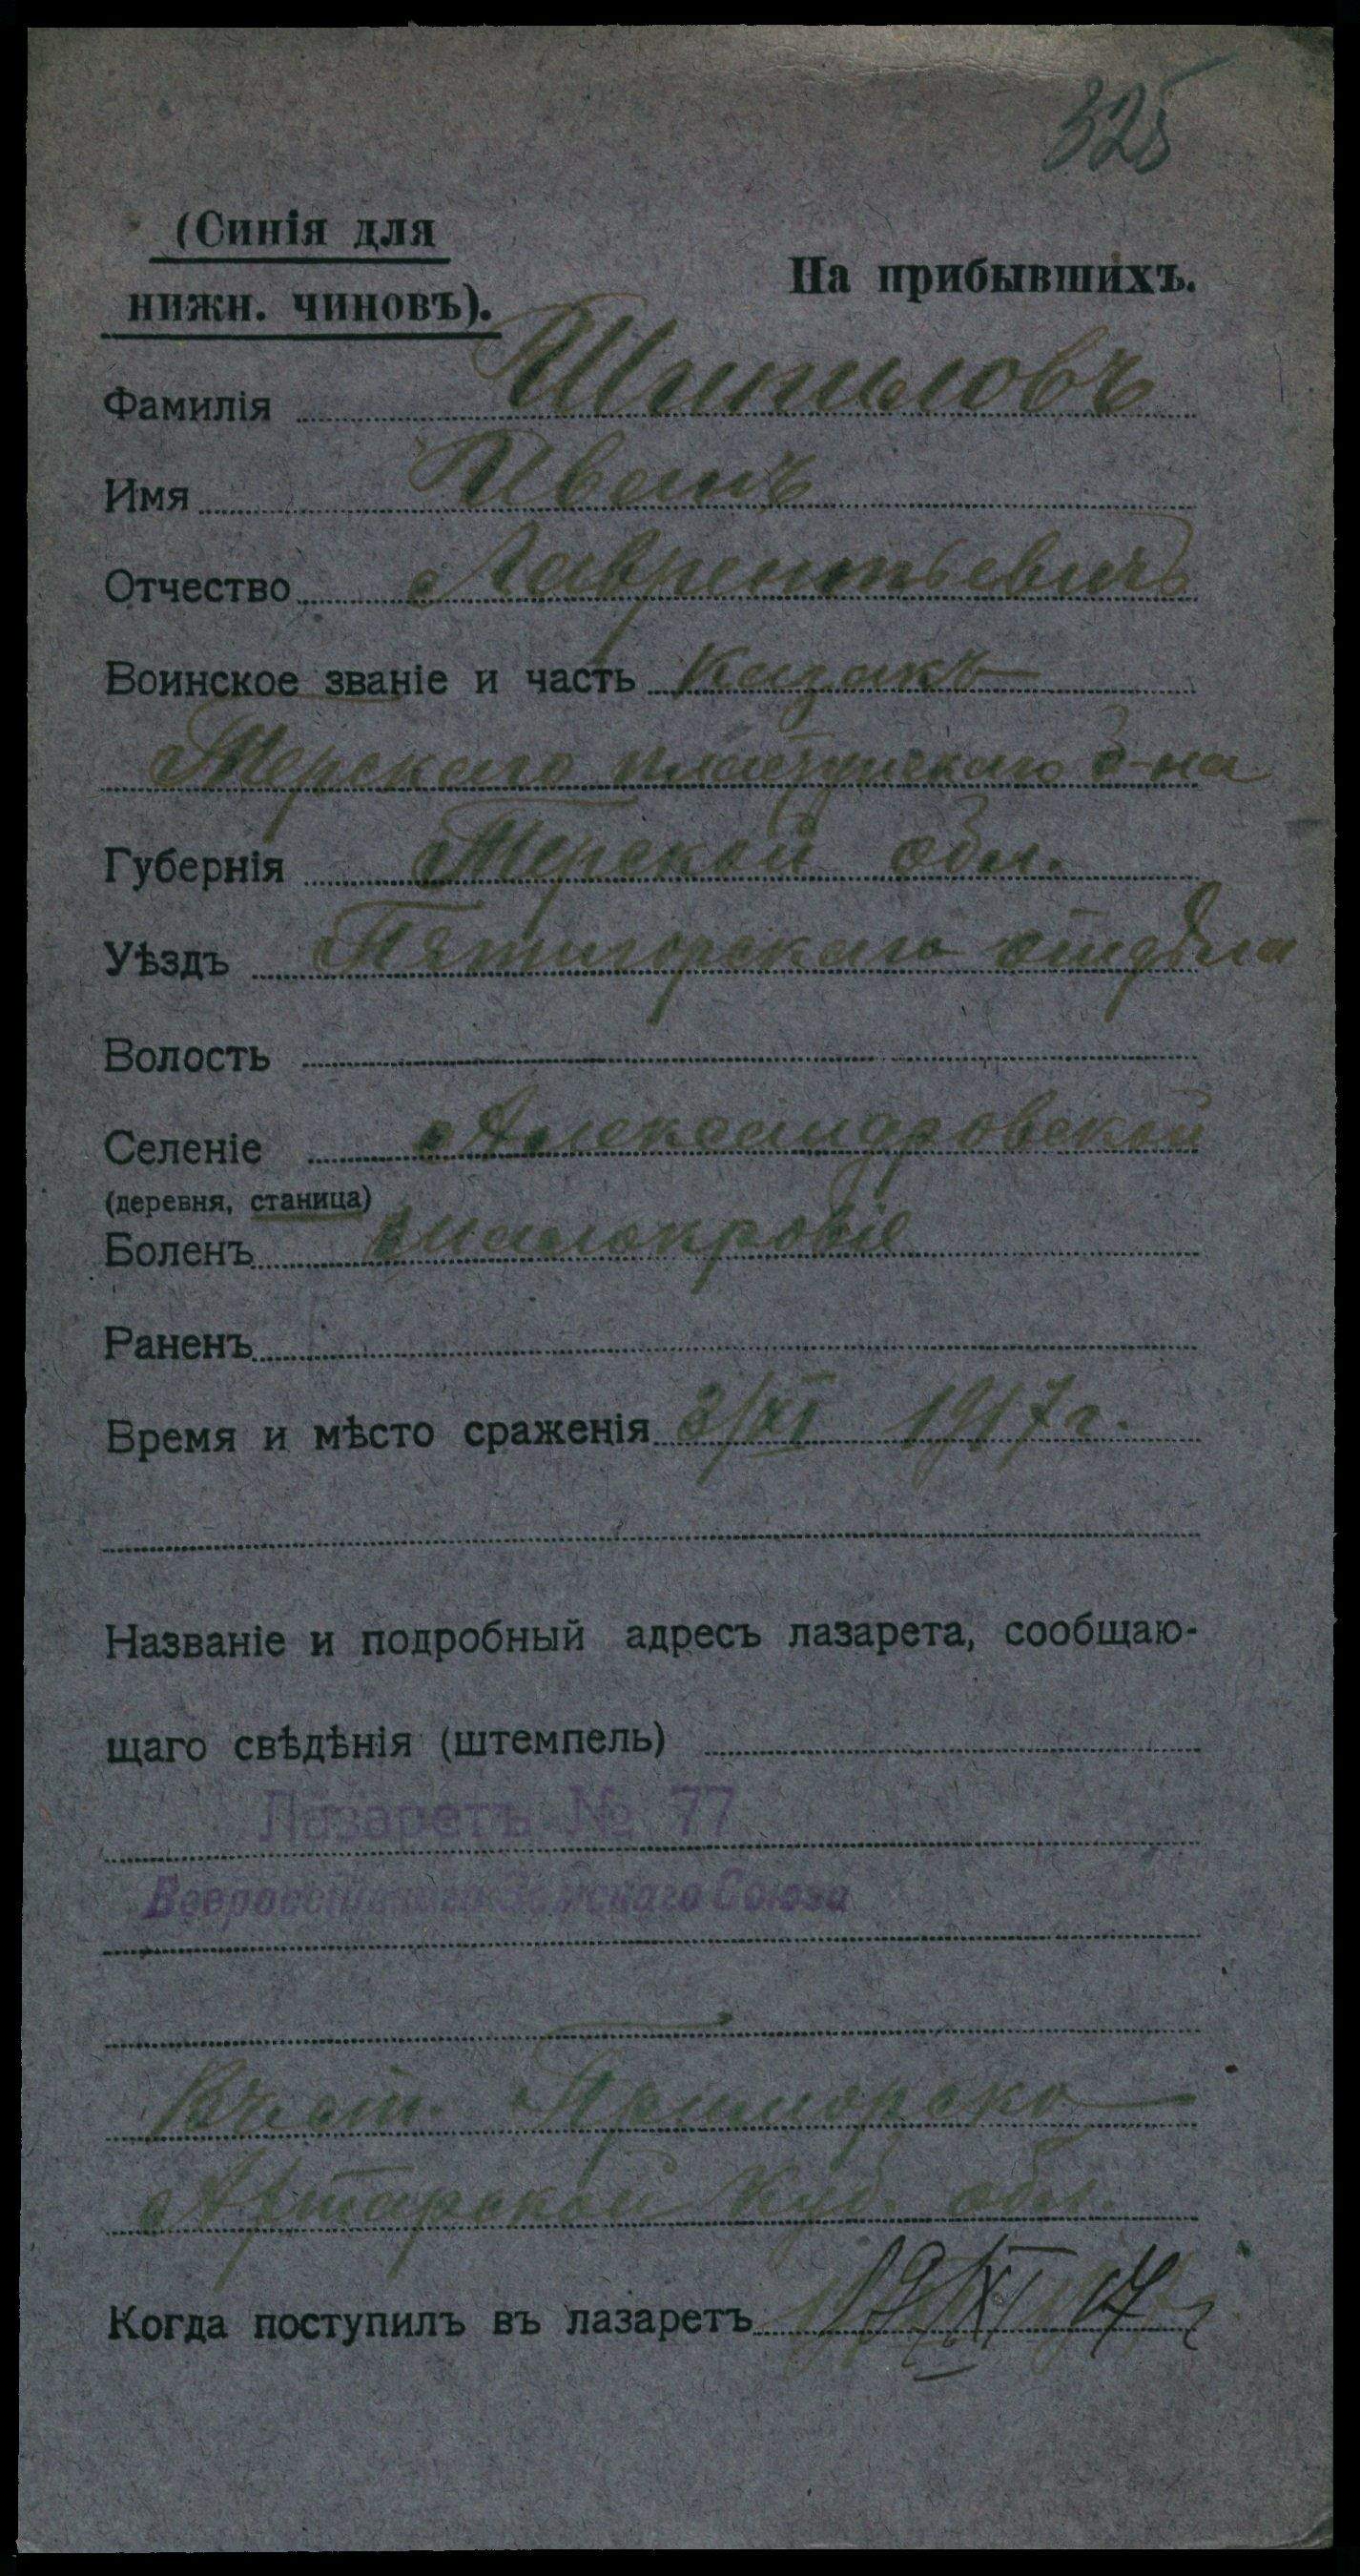 325
(Синія для
нижн. чиновъ).
На прибывшихъ.
Фамилія Шипиловъ
Имя Иванъ
Отчество Лаврентьевичъ
Воинское званіе и часть казакъ
Терскаго пластунскаго б-на
Губернія Терской обл.
Уѣздъ Пятигорскаго отдѣла
Волость
Селеніе Александровской
(деревня, станица)
Боленъ малокровіе
Раненъ
Время и мѣсто сраженія 3/XI 1917 г.
Названіе и подробный адресъ лазарета, сообщаю-
щаго свѣдѣнія (штемпель)
Лазаретъ № 77
Всероссійскаго Земскаго Союза
Приморско
Ахтарской Куб. обл.
Когда поступилъ въ лазаретъ 19/XI 17